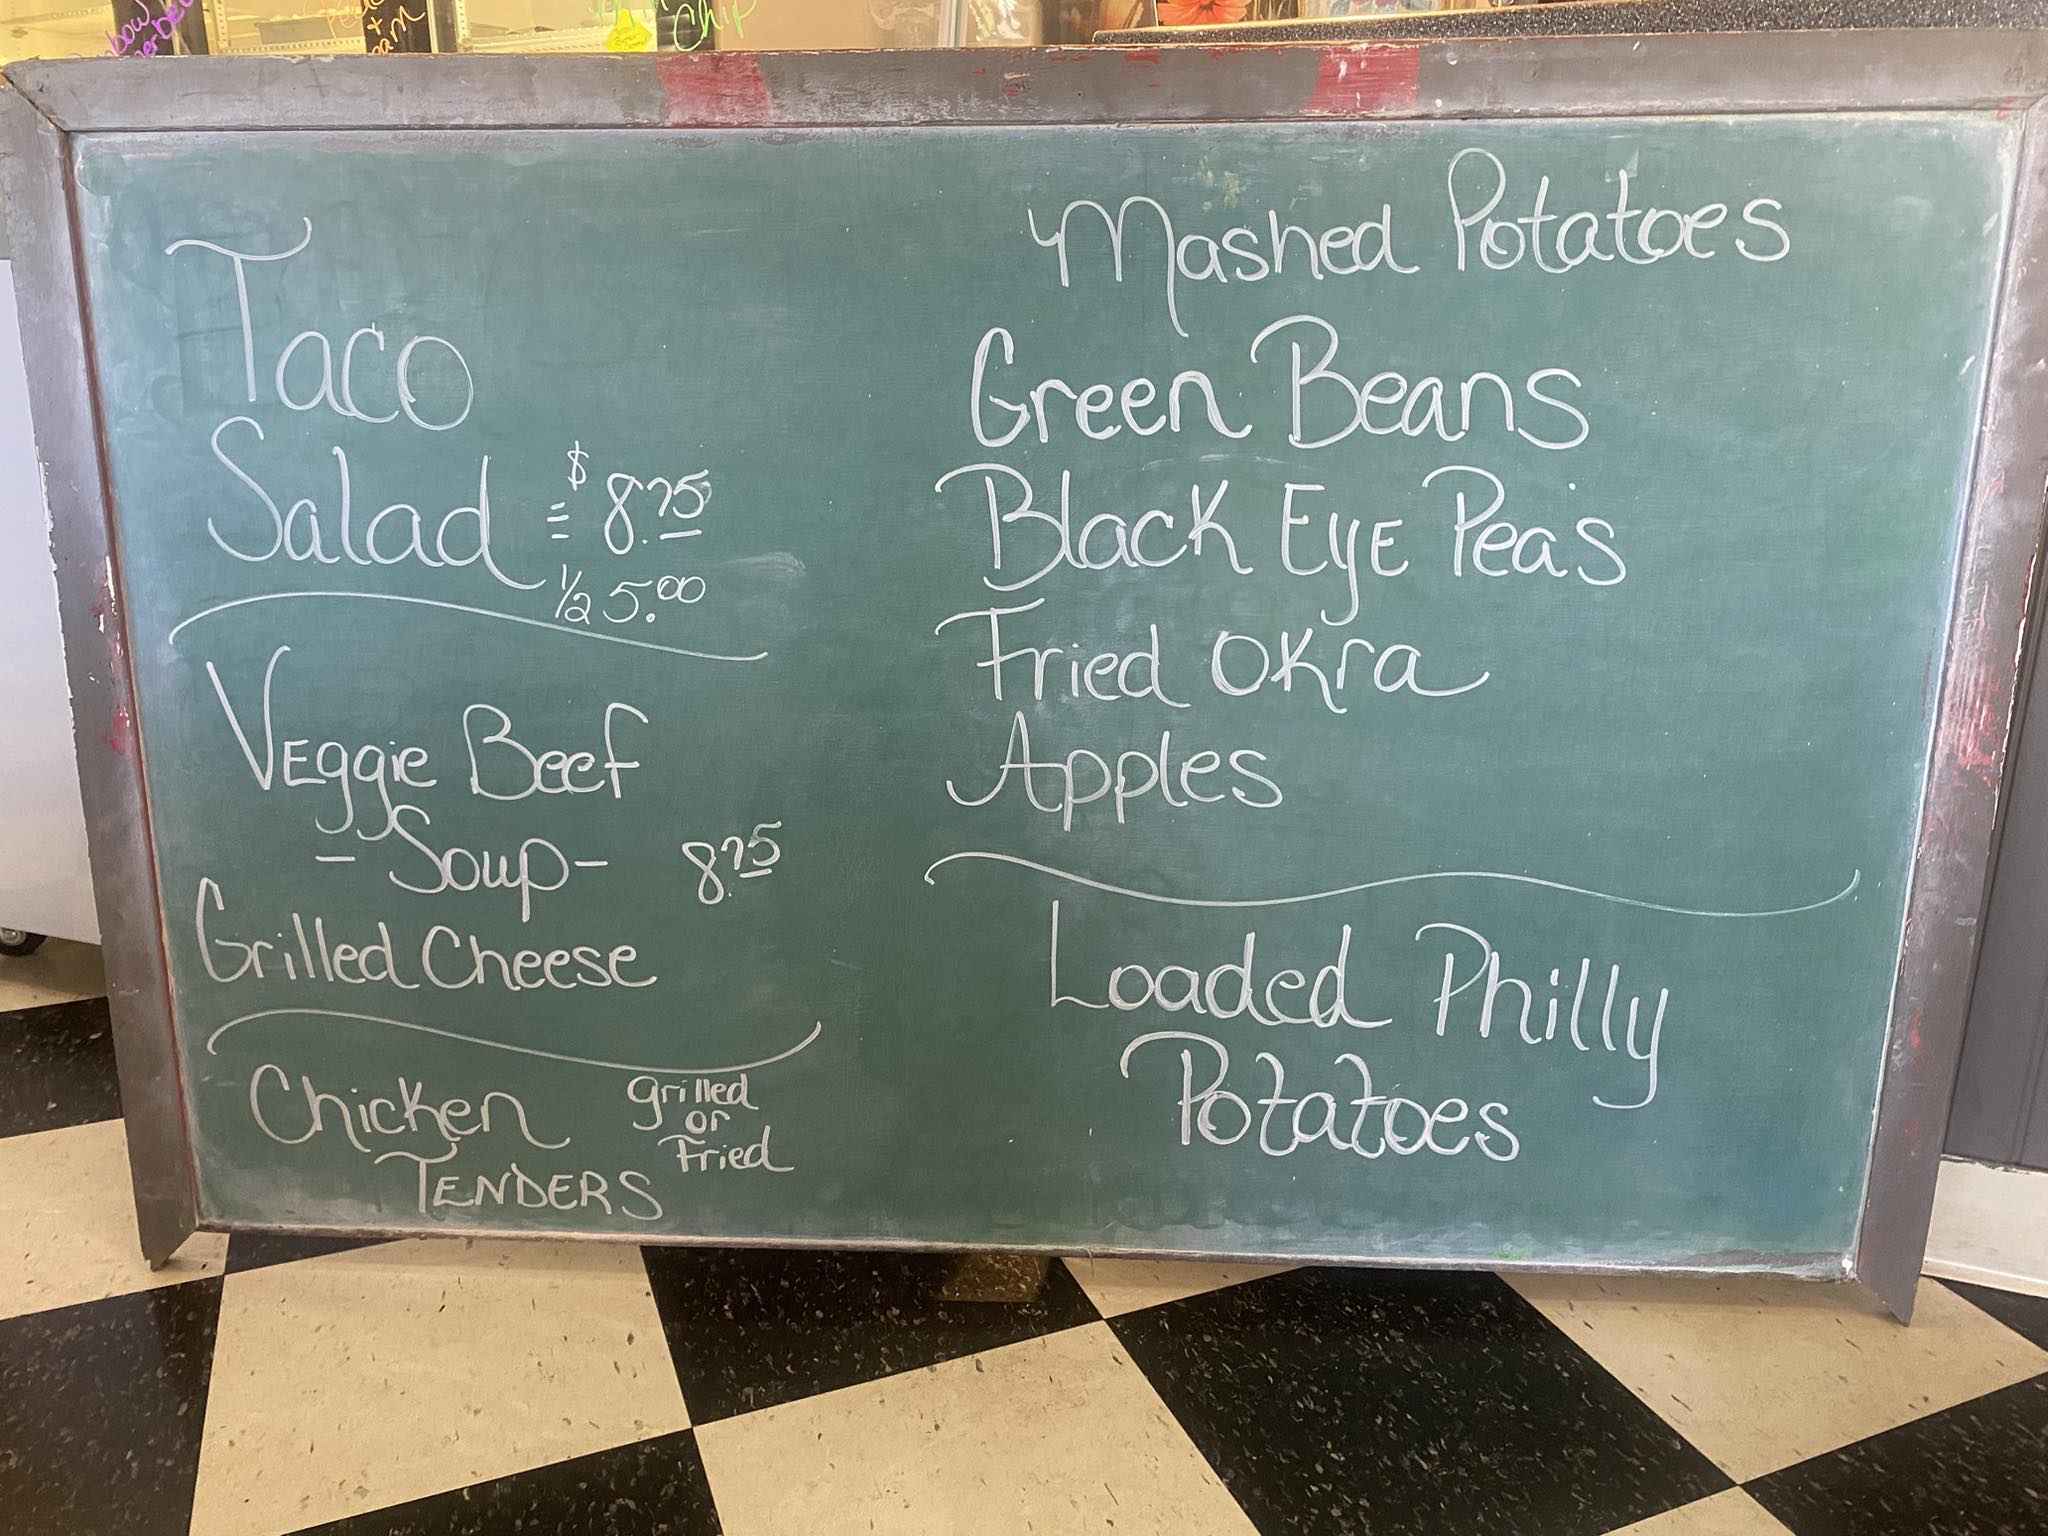 Chip
Taco
Salad = $8.75
1/2 5.00
Veggie Beef
- Soup - 8.75
Grilled Cheese
Chicken grilled
or
Fried
TENDERS
Mashed Potatoes
Green Beans
Black Eye Pea's
Fried Okra
Apples
Loaded Philly
Potatoes